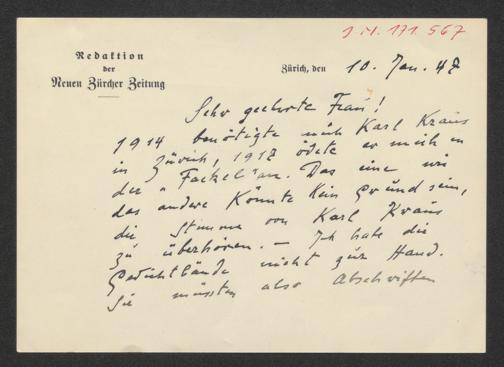 J.N. 171.567
Redaktion
der
Neuen Zürcher Zeitung
Zürich, den 10. Jan. 47
Sehr geehrte Frau!
1914 benötigte mich Karl Kraus
in Zürich, 1917 ödete er mich in
der "Fackel" an. Das eine wie
das andere könnte kein Grund sein,
die Stimme von Karl Kraus
zu überhören. – Ich habe die
Gedichtbände nicht zur Hand.
Sie müssten also Abschriften